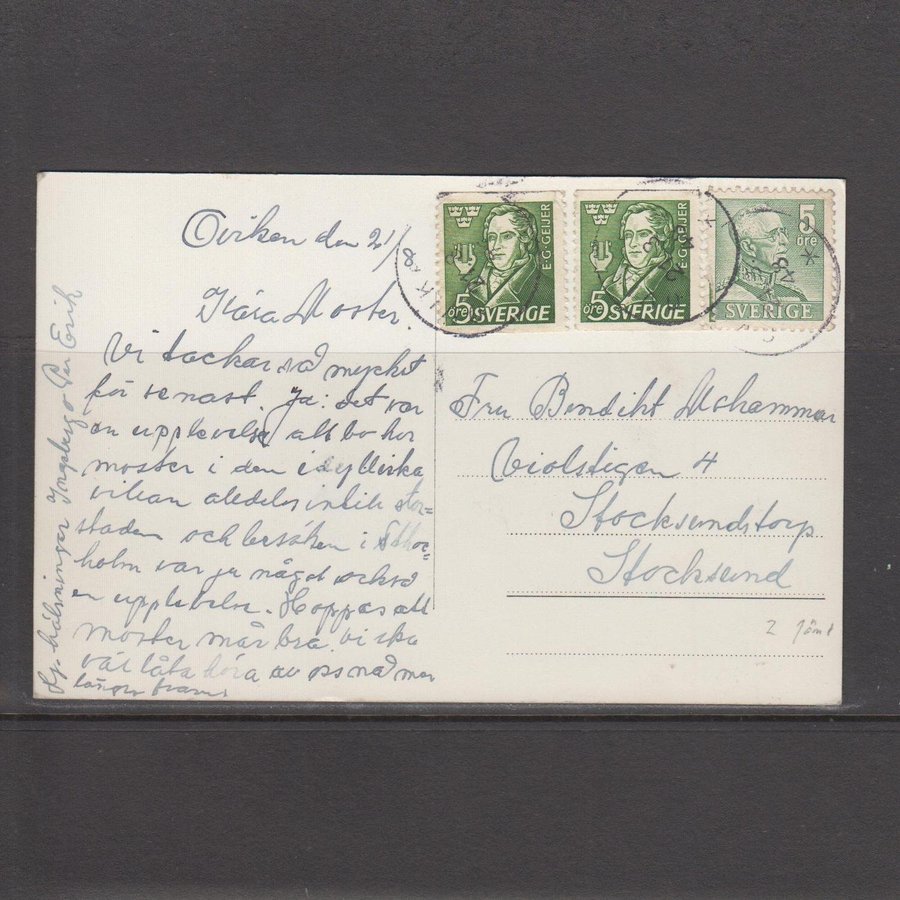 Oviken den 21/
Kära Moster.
Vi tackar så mycket
för senast. Ja: det var
en upplevelse att bo hos
moster i den idylliska
villan alldeles intill stor=
staden och besöken i Stoc=
holm var ju något också
en upplevelse. Hoppas att
moster mår bra. Vi ska
väl låta höra av oss nåd mer
längre fram.
Hj. hälsningar Ingeborg o Per Erik
E·G·GEIJER
5 öre SVERIGE
E·G·GEIJER
5 öre SVERIGE
5 öre
SVERIGE
Fru Bendikt
Violstigen 4
Stocksundstorp
Stocksund
2 Jämt